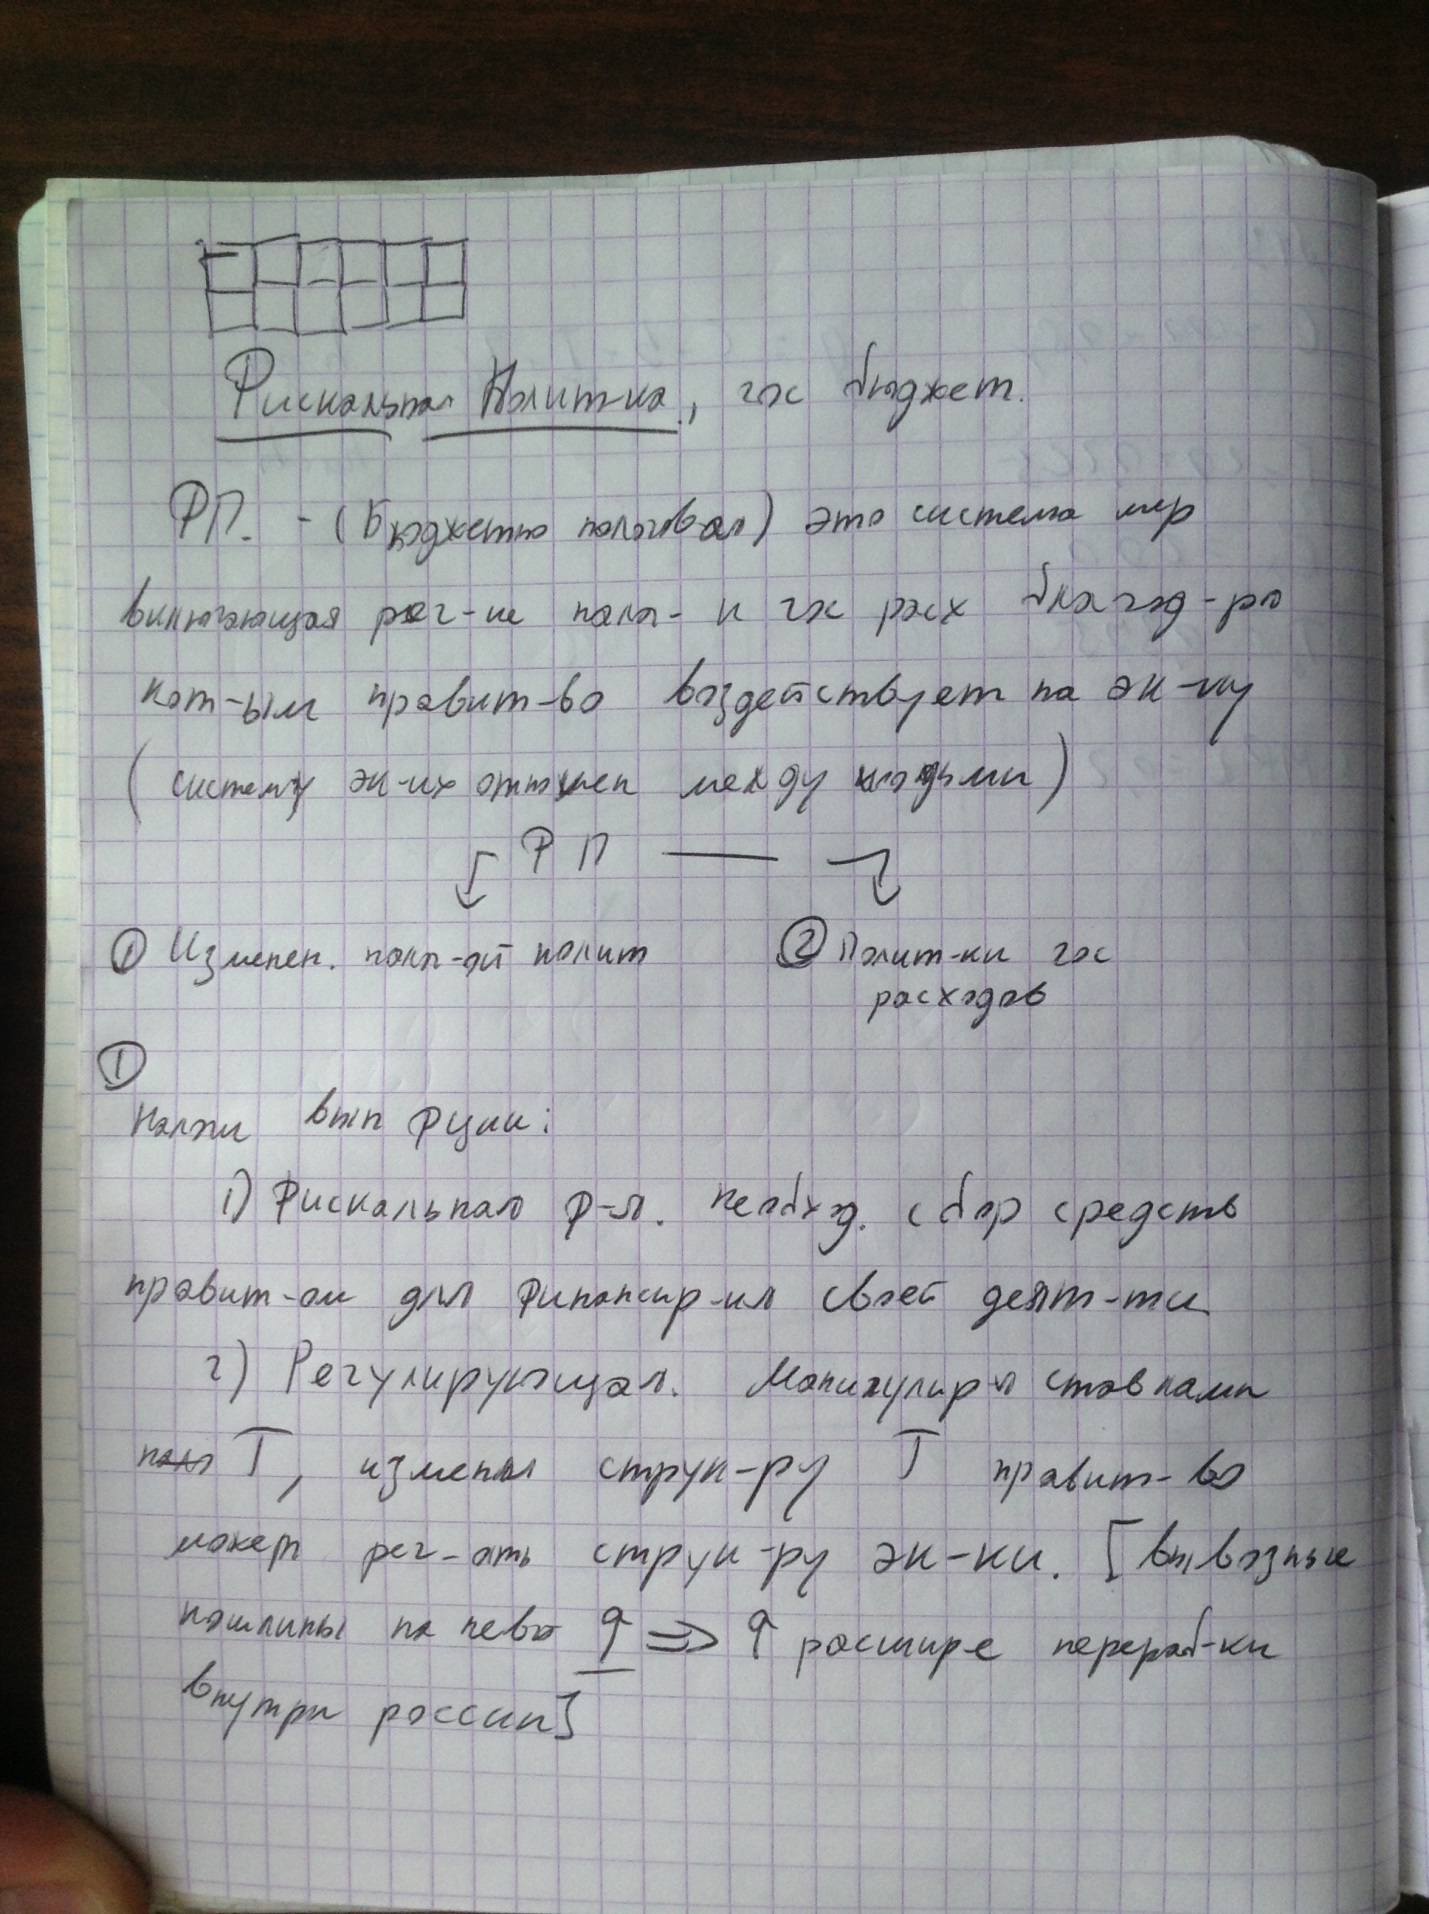 Фискальная Полит-ка, гос бюджет.
ФП. - (Бюджетно налоговая) это система мер
включающая рег-ие нало- и гос расх благод-ро
кот-ым правит-во воздействует на эк-ку
(систему эк-их отношен между людьми)
ФП
① Изменен. нало-ой полит
② Полит-ки гос
расходов
①
Налоги вып фции:
1) Фискальная ф-я. необход. сбор средств
правит-ом для финансир-ия своей деят-ти
2) Регулирующая. Манипулир-я ставками
T, изменяя струк-ру T правит-во
может рег-ать струк-ру эк-ки. [вывозные
пошлины на нефть ↑ ⇒ ↑ расшир-е перераб-ки
внутри россии]